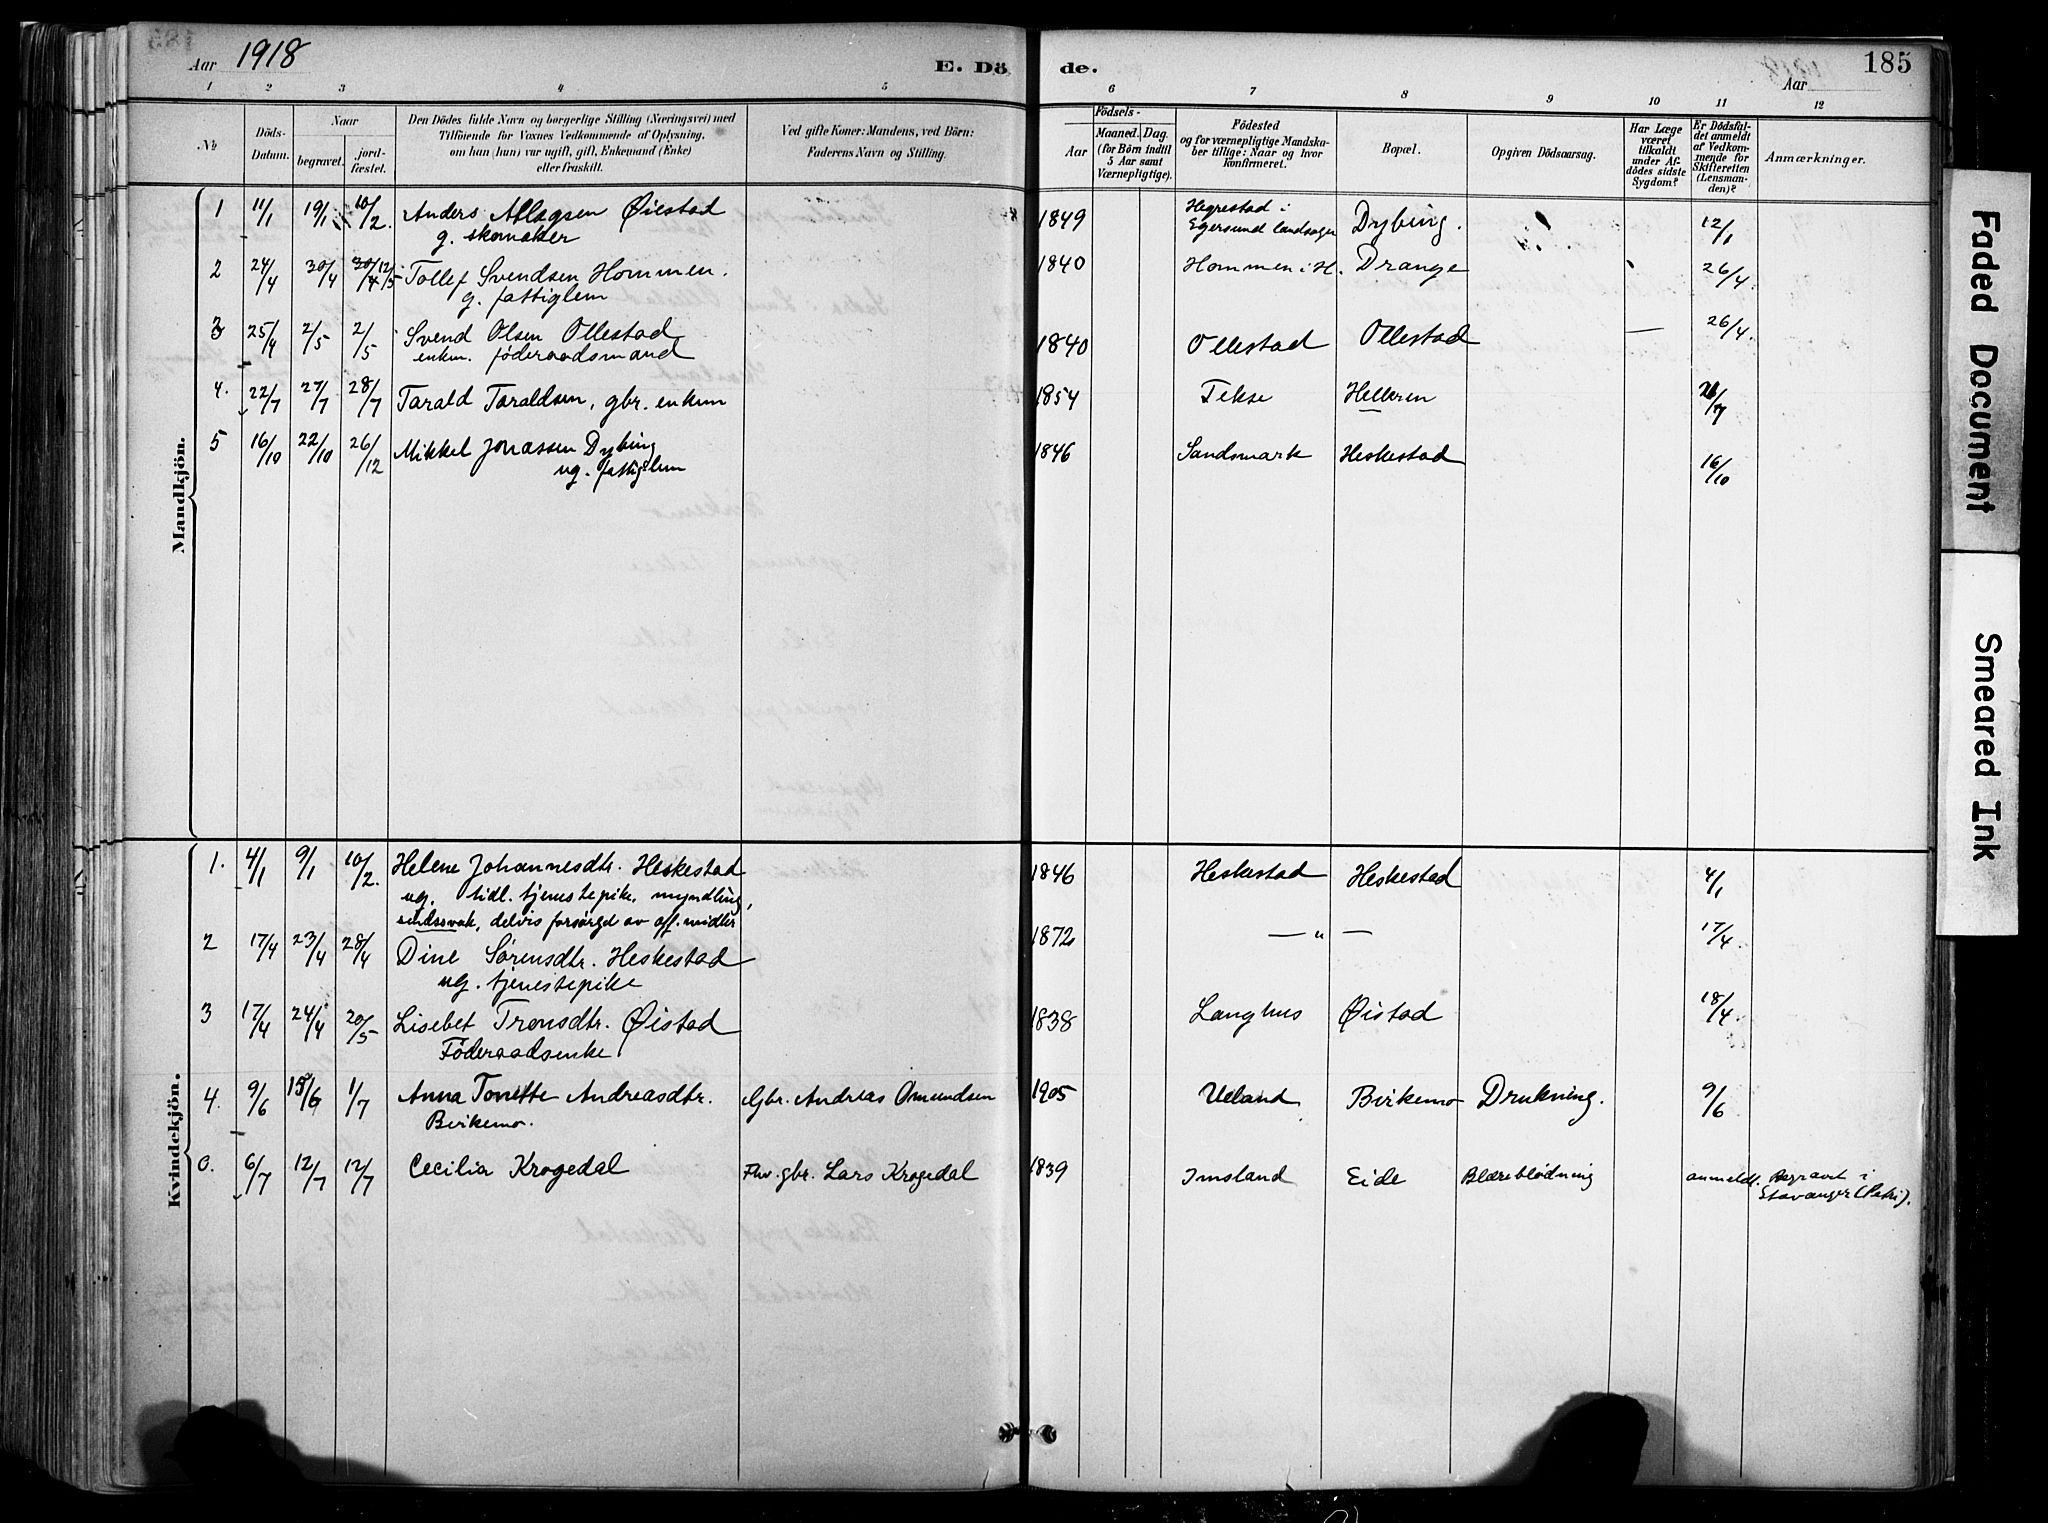 Aar 1918
E. Dö de.
185
Aar
1 2 3 4 5 6 7 8 9 10 11 12
No.
Döds-Datum.
Naar
begravet.
jord-fæstet.
Den Dödes fulde Navn og borgerlige Stilling (Næringsvei) med
Tilföiende for Voxnes Vedkommende af Oplysning,
om han (hun) var ugift, gift, Enkemand (Enke)
eller fraskilt.
Ved gifte Koner: Mandens, ved Börn:
Faderens Navn og Stilling.
Födsels-
Aar
Maaned. Dag.
(for Börn indtil
5 Aar samt
Værnepligtige).
Födested
og for værnepligtige Mandska-
ber tillige: Naar og hvor
konfirmeret.
Bopæl.
Opgiven Dödsaarsag.
Har Læge
været
tilkaldt
under Af-
dödes sidste
Sygdom?
Er Dödsfal-
det anmeldt
af Vedkom-
mende for
Skifteretten
(Lensman-
den)?
Anmærkninger.
Mandkjön.
1 11/1 19/1 10/2. Anders Aslagsen Øiestad 1849 Hegrestad i Dybing. 12/1
g. skomaker Egersund landsogn
2 24/4 30/4 30/4 12/5 Tollef Svendsen Hommen. 1840 Hommen i H. Drange 26/4.
g. fattiglem
3 25/4 2/5 2/5 Svend Olsen Ollestad 1840 Ollestad Ollestad — 26/4.
enkm. føderaadsmand
4. 22/7 27/7 28/7 Tarald Taraldsen, gbr. enkem 1854 Tekse Helleren 26/7
5 16/10 22/10 26/12 Mikkel Jonassen Dybing 1846 Sandsmark Heskestad 16/10
ug. fattiglem
Kvindekjön.
1. 4/1 9/1 10/2. Helene Johannesdtr. Heskestad 1846 Heskestad Heskestad 4/1
ug. tidl. tjenestepike, myndling,
sindssvak, delvis forsørget av off. midler
2 17/4 23/4 28/4 Dine Sørensdtr. Heskestad 1872 — " — 17/4.
ug. tjenestepike
3 17/4 24/4 20/5 Lisebet Tronsdtr. Øistad 1838 Langhus Øistad 18/4.
Føderaadsenke
4. 9/6 15/6 1/7 Anna Tonette Andreasdtr. Gbr. Andreas Omundsen 1905 Ueland Birkemo Drukning. 9/6
Birkemo.
0. 6/7 12/7 12/7 Cecilia Krogedal Fhv. gbr. Lars Krogedal 1839 Imsland Eide Blæreblødning anmeldt. Begravet i
Stavanger (Petri).
Faded Document
Smeared Ink